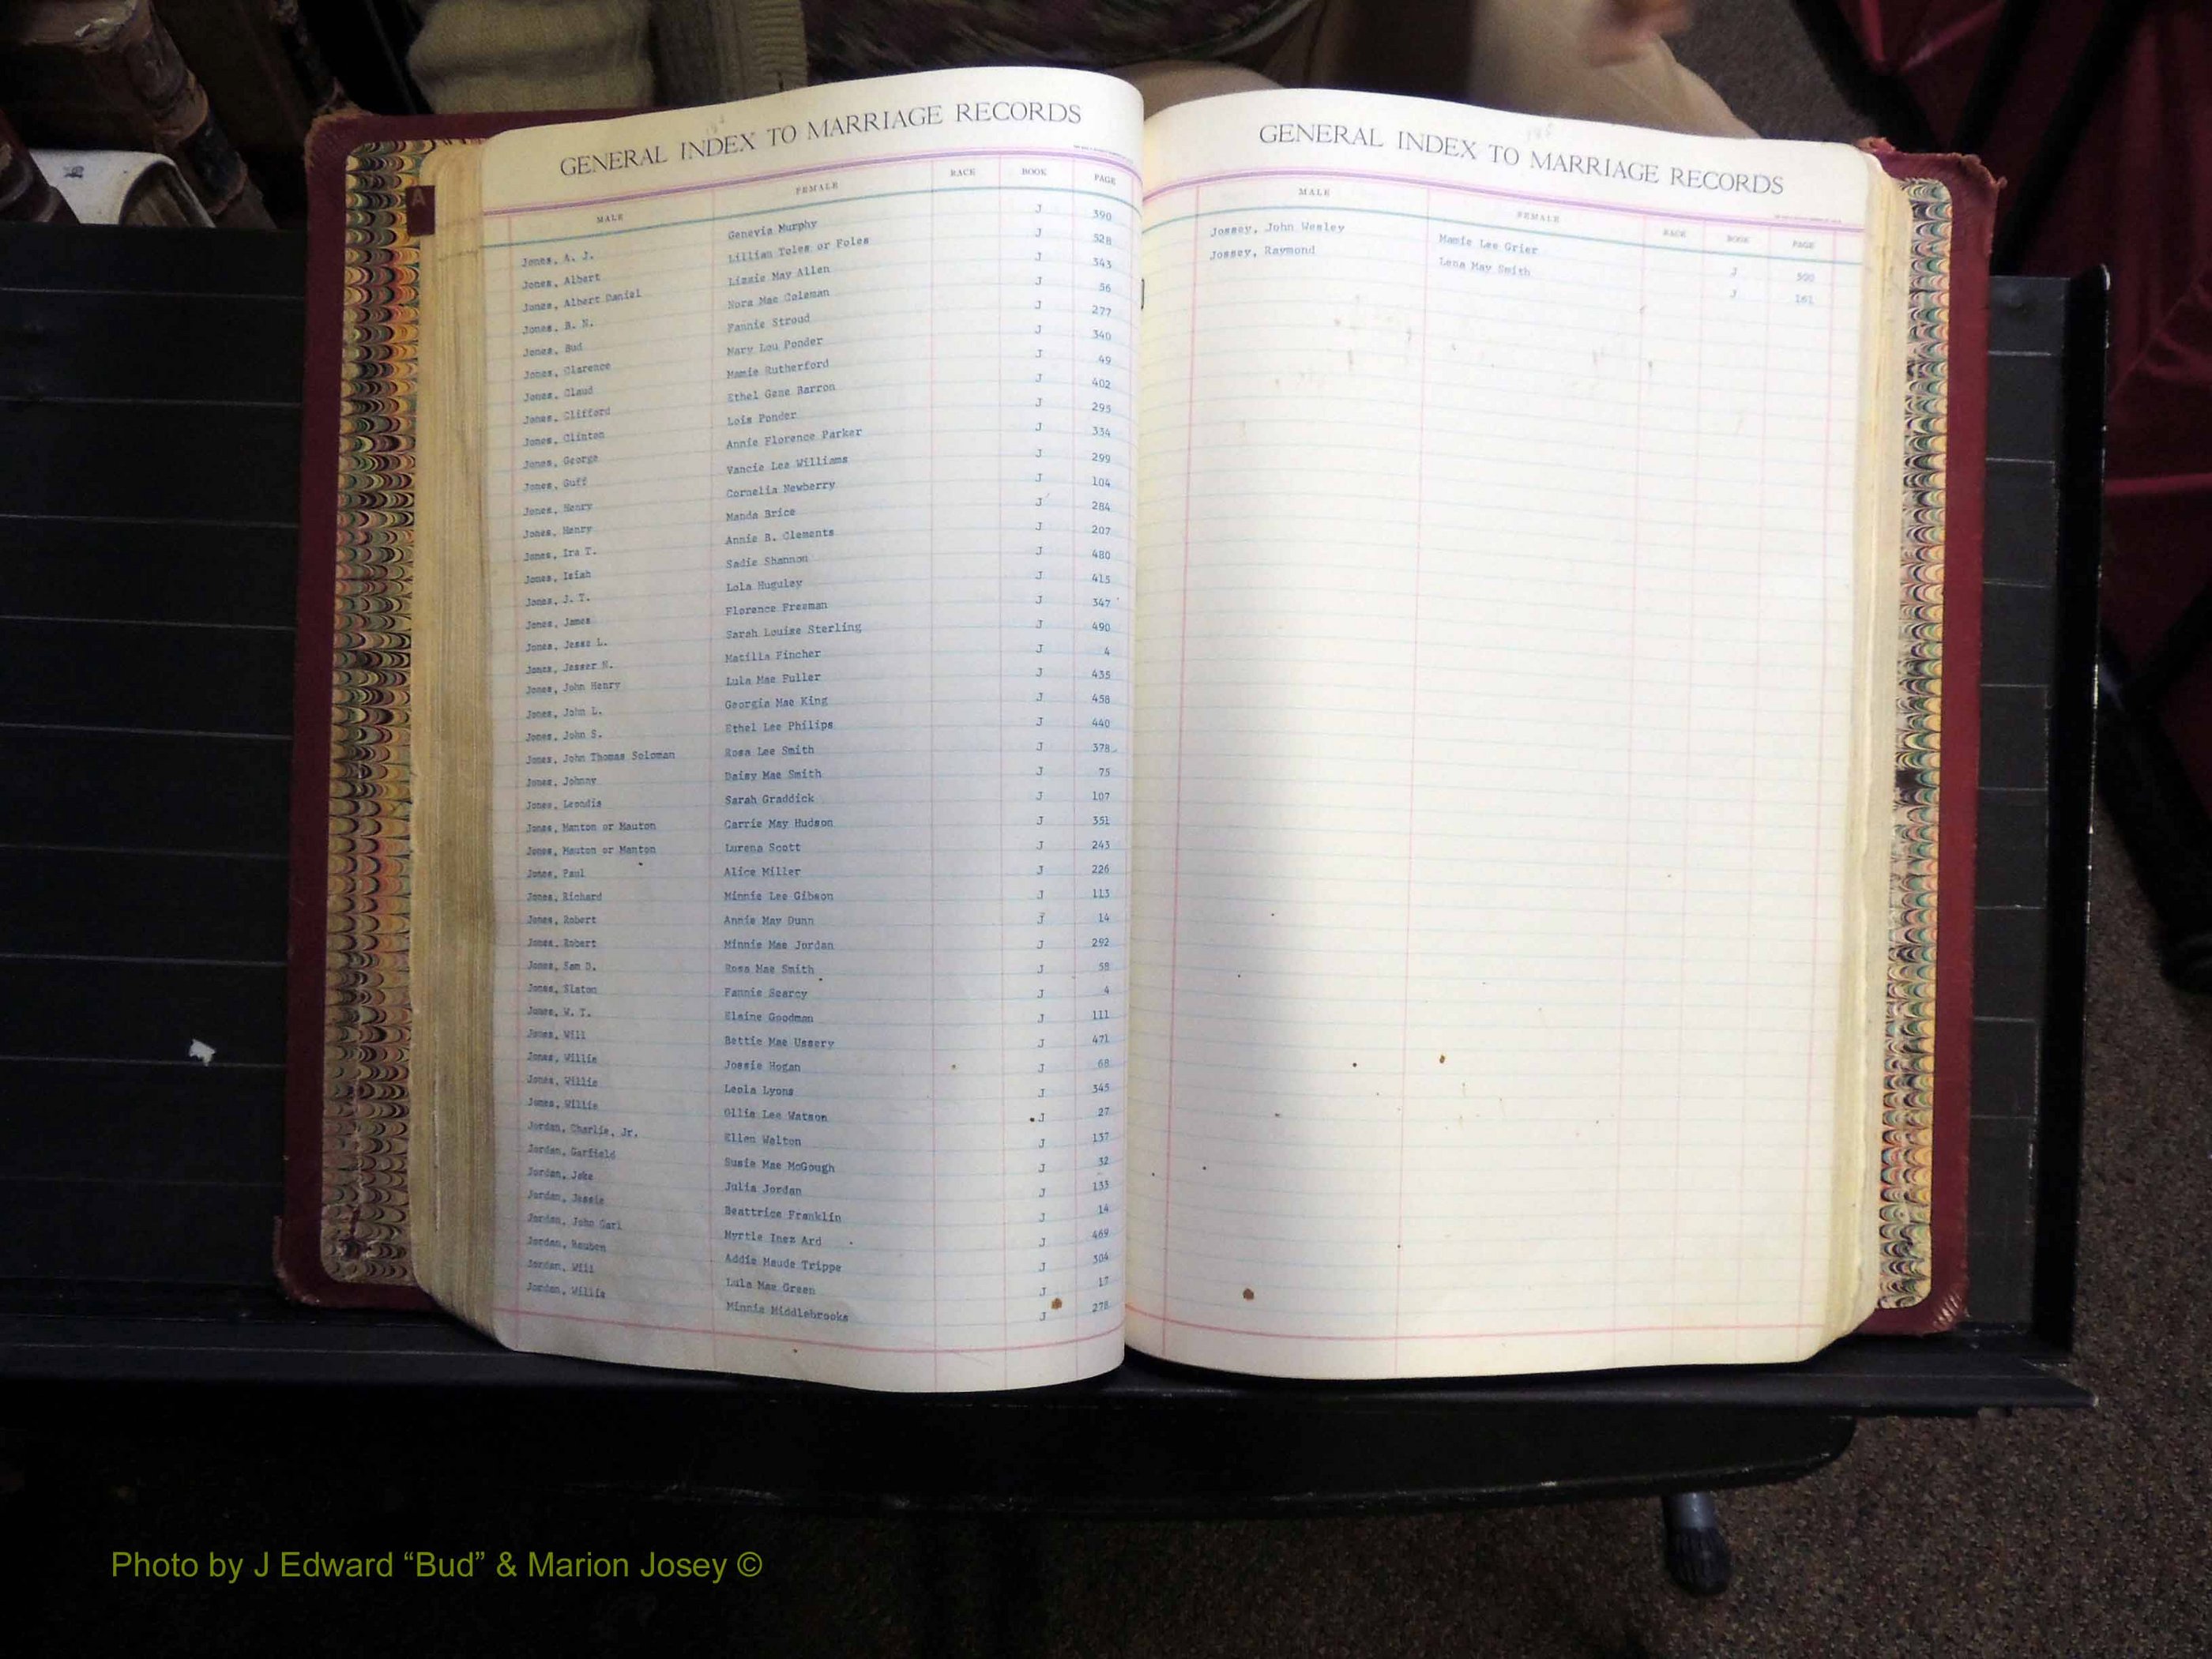 GENERAL INDEX TO MARRIAGE RECORDS
MALE FEMALE RACE BOOK PAGE
Jones, A. J. Genevia Murphy J 390
Jones, Albert Lillian Toles or Foles J 528
Jones, Albert Daniel Lizzie May Allen J 343
Jones, B. N. Nora Mae Coleman J 56
Jones, Bud Fannie Stroud J 277
Jones, Clarence Mary Lou Ponder J 340
Jones, Claud Mamie Rutherford J 49
Jones, Clifford Ethel Gene Barron J 402
Jones, Clinton Lois Ponder J 295
Jones, George Annie Florence Parker J 334
Jones, Guff Vancie Lee Williams J 299
Jones, Henry Cornelia Newberry J 104
Jones, Henry Manda Brice J 284
Jones, Ira T. Annie B. Clements J 207
Jones, Isiah Sadie Shannon J 480
Jones, J. T. Lola Huguley J 415
Jones, James Florence Freeman J 347
Jones, Jesse L. Sarah Louise Sterling J 490
Jones, Jesser N. Matilla Fincher J 4
Jones, John Henry Lula Mae Fuller J 435
Jones, John L. Georgia Mae King J 458
Jones, John S. Ethel Lee Philips J 440
Jones, John Thomas Soloman Rosa Lee Smith J 378
Jones, Johnny Daisy Mae Smith J 75
Jones, Leondis Sarah Graddick J 107
Jones, Manton or Mauton Carrie May Hudson J 351
Jones, Mauton or Manton Lurena Scott J 243
Jones, Paul Alice Miller J 226
Jones, Richard Minnie Lee Gibson J 113
Jones, Robert Annie May Dunn J 14
Jones, Robert Minnie Mae Jordan J 292
Jones, Sam D. Rosa Mae Smith J 58
Jones, Slaton Fannie Searcy J 4
Jones, W. T. Elaine Goodman J 111
Jones, Will Bettie Mae Ussery J 471
Jones, Willie Jossie Hogan J 68
Jones, Willie Leola Lyons J 345
Jones, Willie Ollie Lee Watson J 27
Jordan, Charlie, Jr. Ellen Walton J 137
Jordan, Garfield Susie Mae McGough J 32
Jordan, Jake Julia Jordan J 133
Jordan, Jessie Beattrice Franklin J 14
Jordan, John Carl Myrtle Inez Ard J 469
Jordan, Reuben Addie Maude Trippe J 304
Jordan, Will Lula Mae Green J 17
Jordan, Willie Minnie Middlebrooks J 278
GENERAL INDEX TO MARRIAGE RECORDS
MALE FEMALE RACE BOOK PAGE
Jossey, John Wesley Mamie Lee Grier J 500
Jossey, Raymond Lena May Smith J 161
A
Photo by J Edward “Bud” & Marion Josey ©